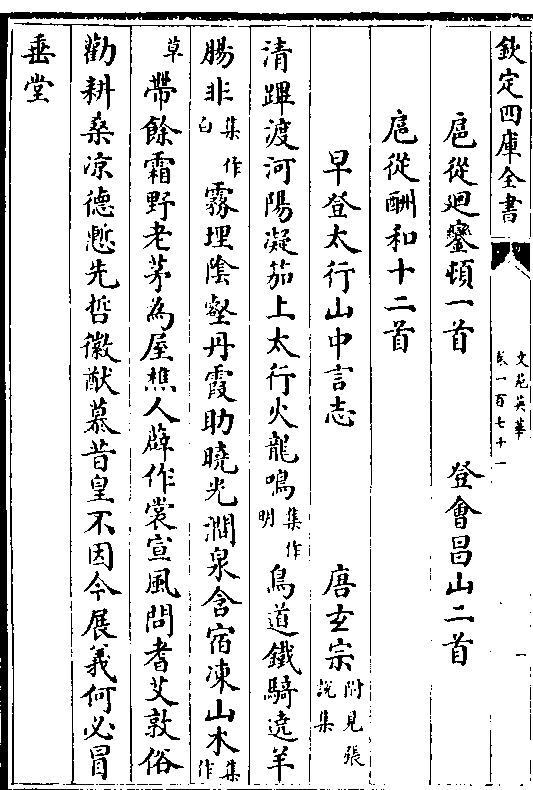 欽定四庫全書
文苑英華
卷一百七十一
一
扈從廻鑾頓一首 登會昌山二首
扈從酬和十二首
早登太行山中言志 唐玄宗附見張說集
清蹕渡河陽凝笳上太行火龍鳴集作明鳥道鐵騎遶羊
腸非集作白霧埋陰壑丹霞助曉光澗泉含宿凍山木集作
草帶餘霜野老茅為屋樵人薜作裳宣風問耆艾敦俗
勸耕桑凉德慙先哲徽猷慕昔皇不因今展義何必冒
垂堂